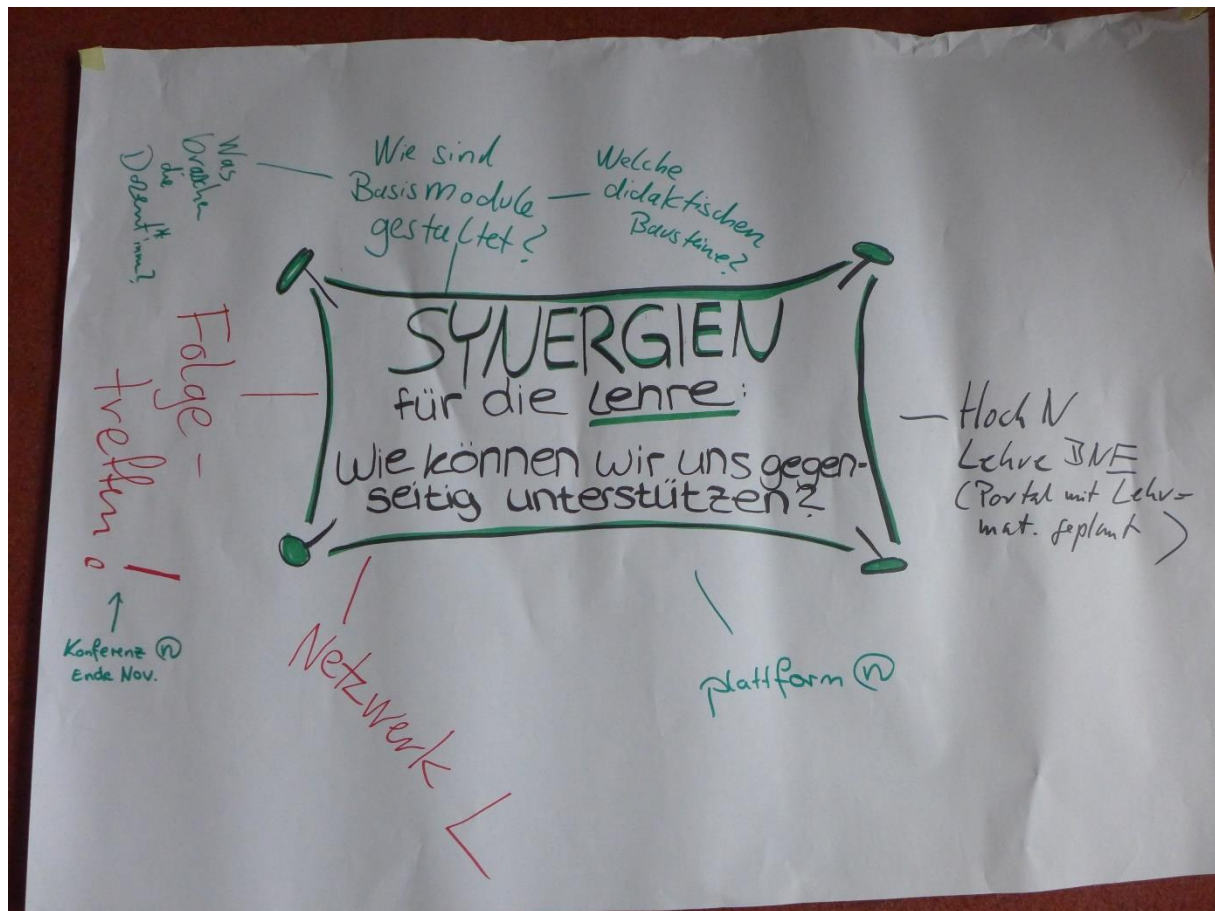 Was
brauchen
die
Dozent*innen?
Wie sind
Basismodule
gestaltet?
Welche
didaktischen
Bausteine?
SYNERGIEN
für die Lehre:
Wie können wir uns gegen-
seitig unterstützen?
Folge-
treffen!
Konferenz n
Ende Nov.
Netzwerk
plattform n
Hoch N
Lehre BNE
(Portal mit Lehr-
mat. geplant)